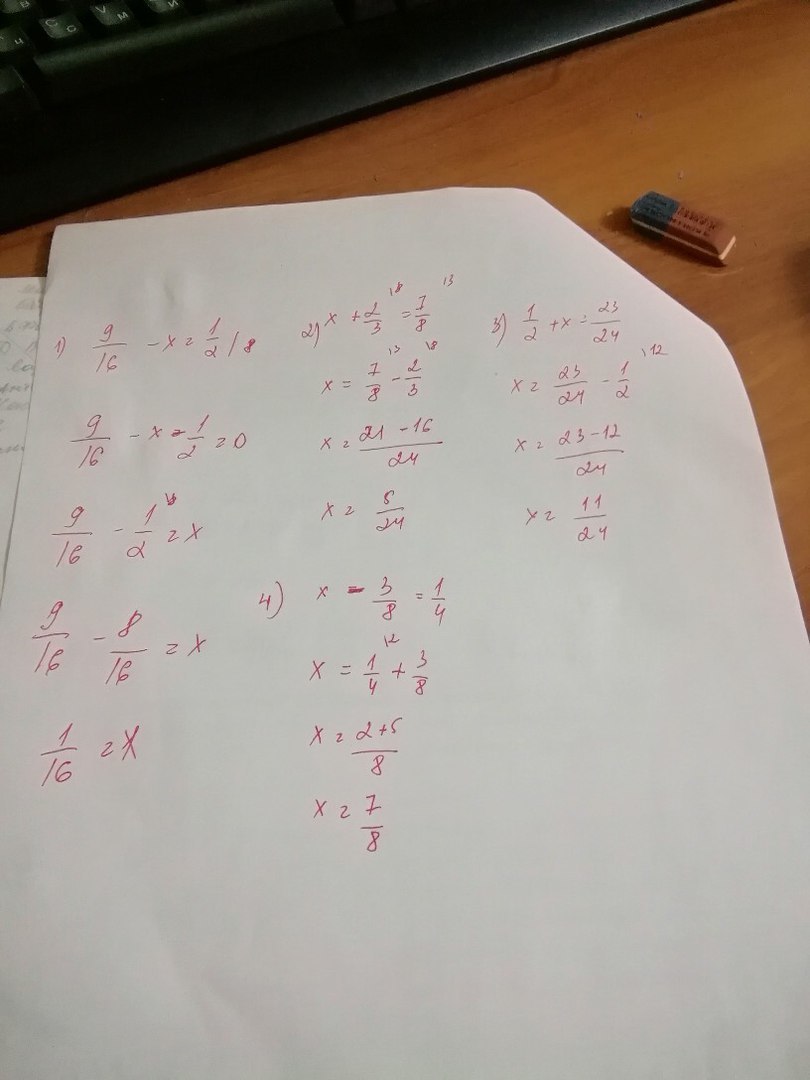 1) 9/16 - x = 1/2 / 8
9/16 - x - 1/2 = 0
9/16 - 1/2 \8 = x
9/16 - 8/16 = x
1/16 = x
2) x + 2/3 \8 = 7/8 \3
x = 7/8 \3 - 2/3 \8
x = 21 - 16/24
x = 5/24
3) 1/2 + x = 23/24
x = 23/24 - 1/2 \12
x = 23-12/24
x = 11/24
4) x - 3/8 = 1/4
x = 1/4 \2 + 3/8
x = 2+5/8
x = 7/8